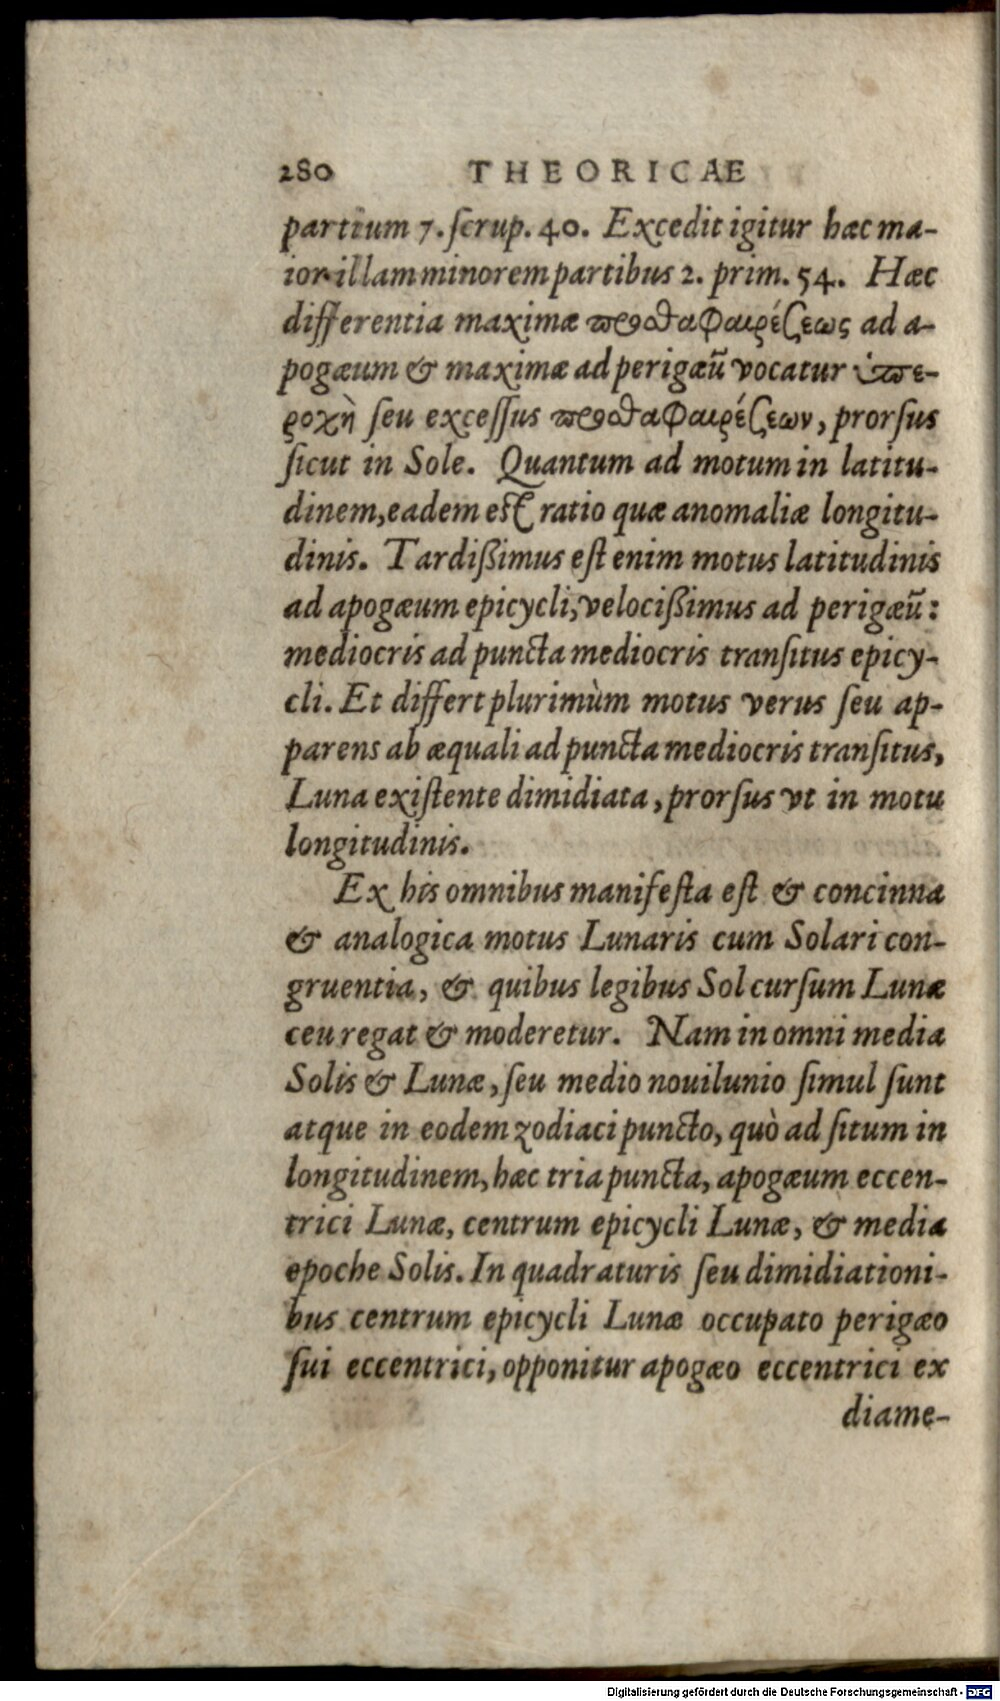 280 THEORICAE
partium 7. ſcrup. 40. Excedit igitur hæc ma-
ior illam minorem partibus 2. prim. 54. Hæc
differentia maximæ προσθαφαιρέσεως ad a-
pogæum & maximæ ad perigæũ vocatur ὑπε-
ροχὴ ſeu exceſſus προσθαφαιρέσεων, prorſus
ſicut in Sole. Quantum ad motum in latitu-
dinem, eadem eſt ratio quæ anomaliæ longitu-
dinis. Tardißimus eſt enim motus latitudinis
ad apogæum epicycli, velocißimus ad perigæũ:
mediocris ad puncta mediocris tranſitus epicy-
cli. Et differt plurimùm motus verus ſeu ap-
parens ab æquali ad puncta mediocris tranſitus,
Luna exiſtente dimidiata, prorſus vt in motu
longitudinis.
Ex his omnibus manifeſta eſt & concinna
& analogica motus Lunaris cum Solari con-
gruentia, & quibus legibus Sol curſum Lunæ
ceu regat & moderetur. Nam in omni media
Solis & Lunæ, ſeu medio nouilunio ſimul ſunt
atque in eodem zodiaci puncto, quò ad ſitum in
longitudinem, hæc tria puncta, apogæum eccen-
trici Lunæ, centrum epicycli Lunæ, & media
epoche Solis. In quadraturis ſeu dimidiationi-
bus centrum epicycli Lunæ occupato perigæo
ſui eccentrici, opponitur apogæo eccentrici ex
diame-
Digitalisierung gefördert durch die Deutsche Forschungsgemeinschaft - DFG